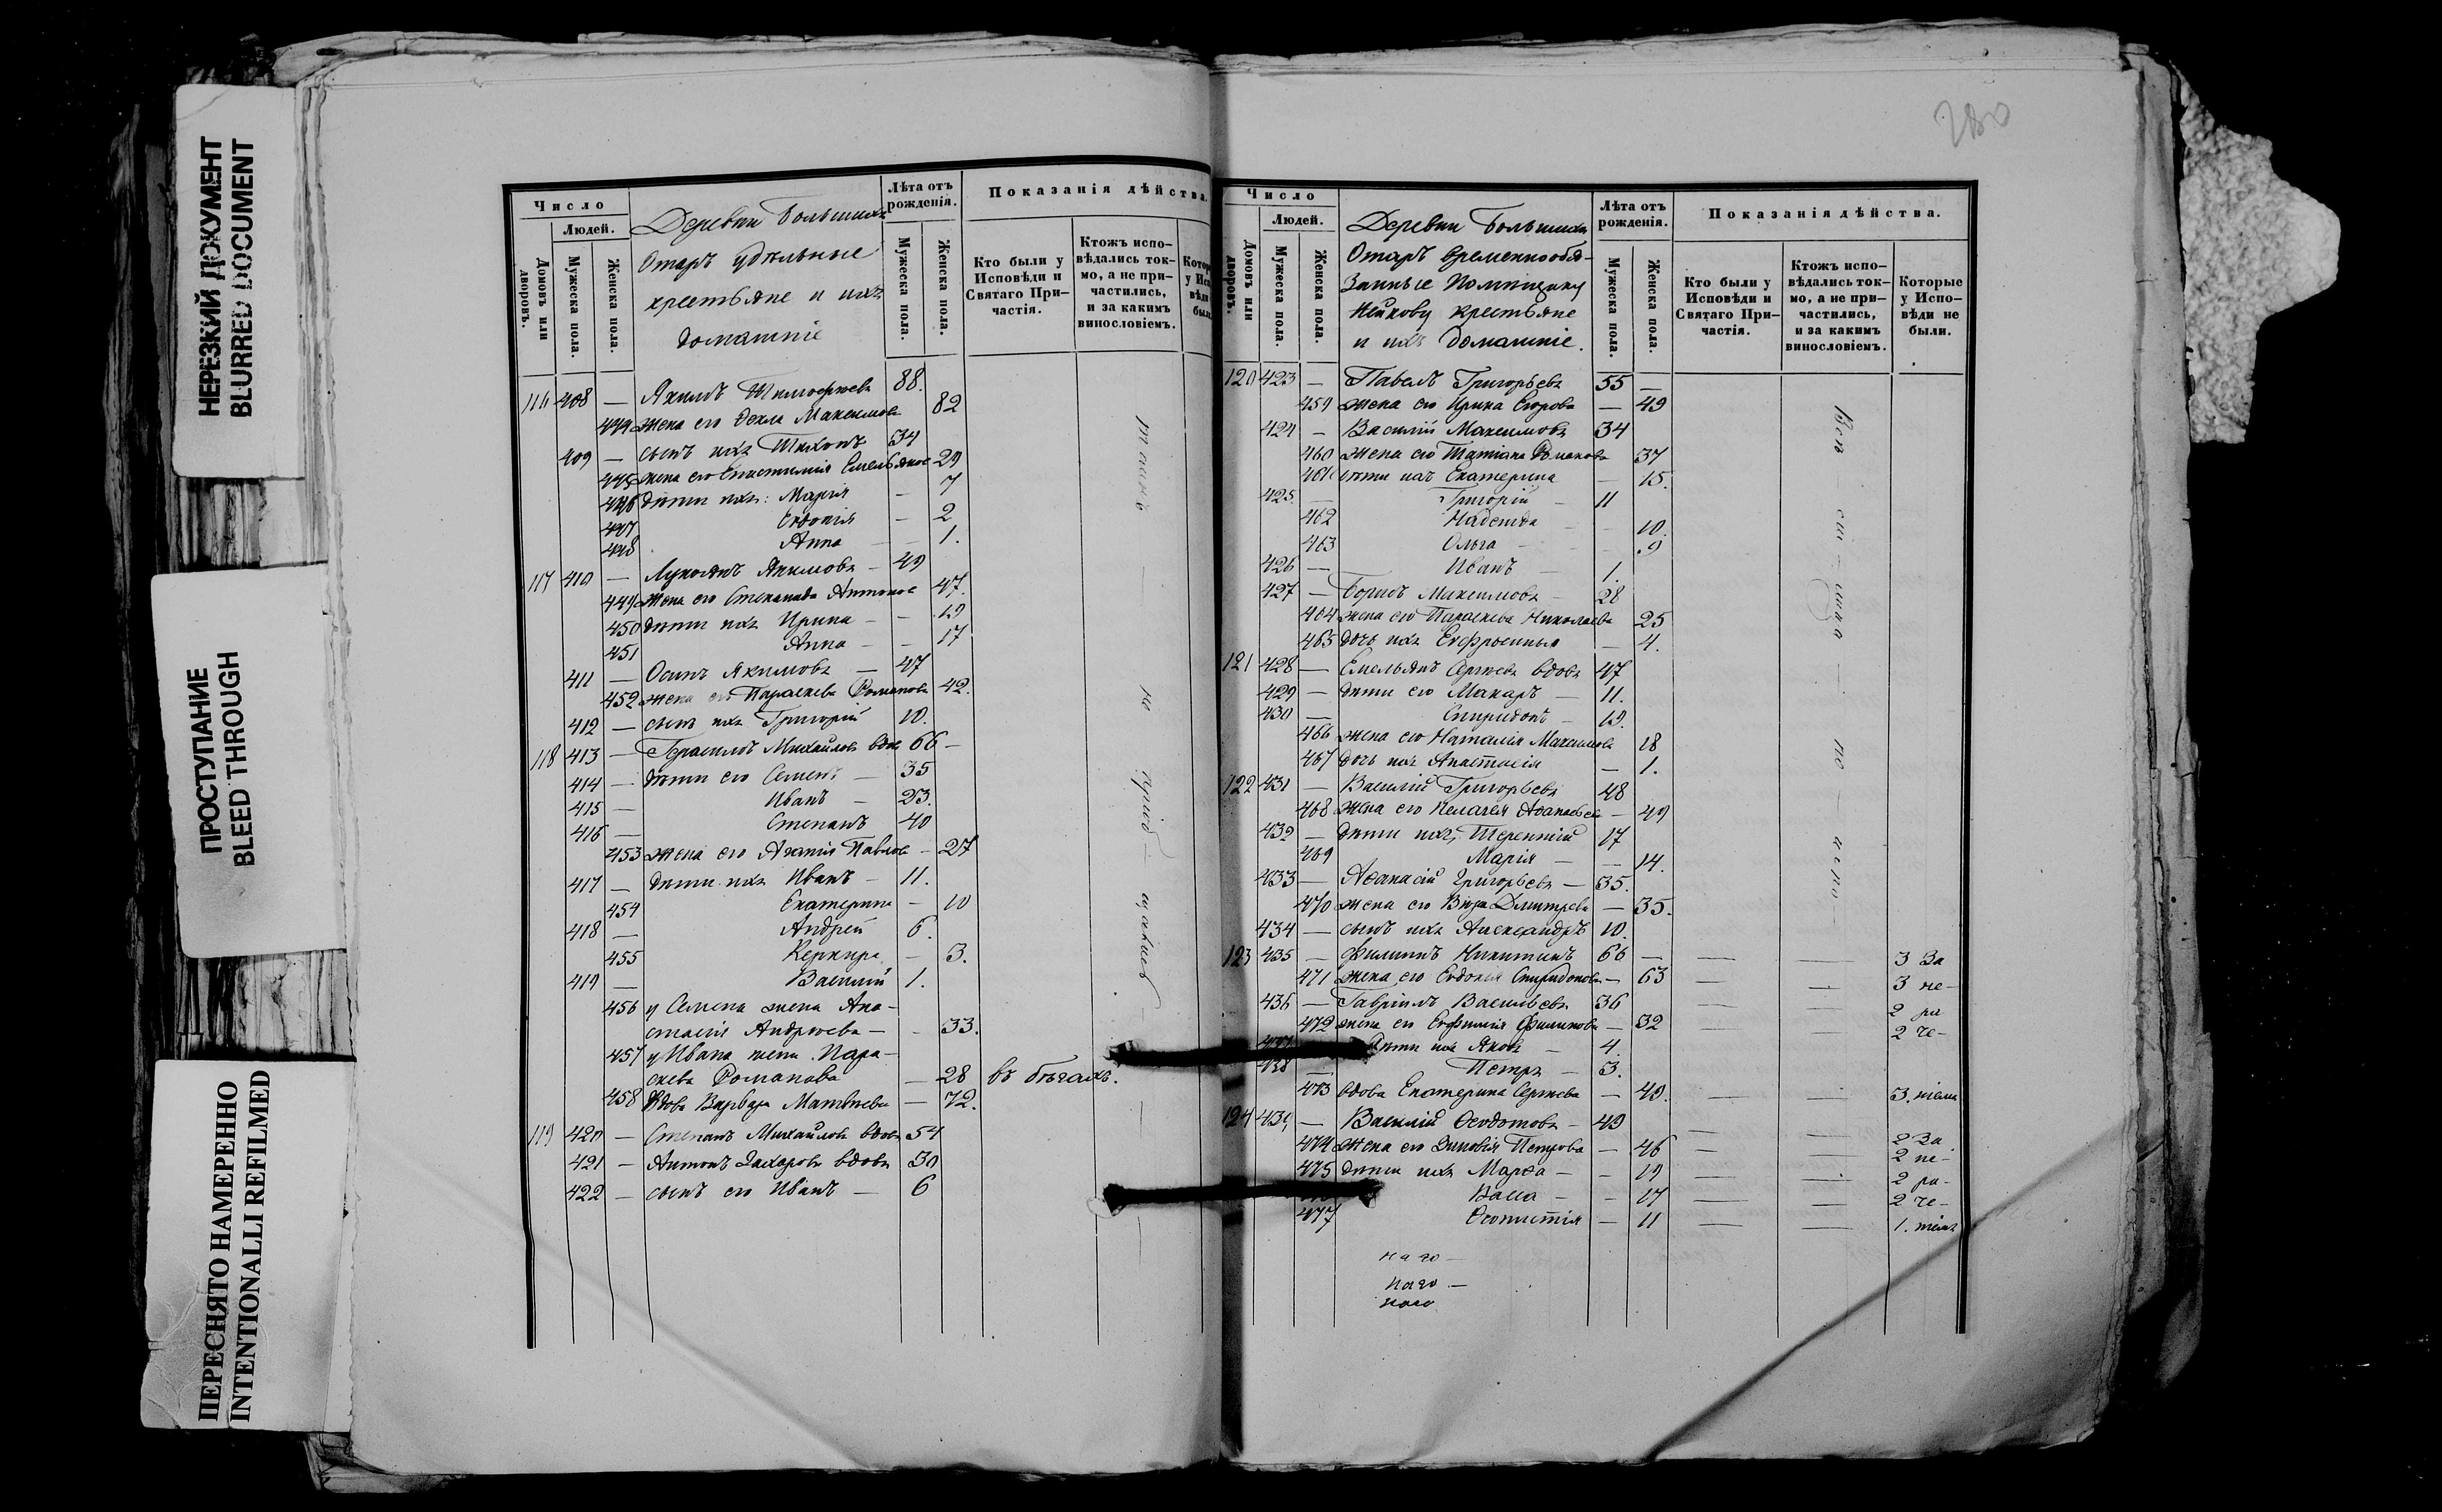 НЕРЕЗКИЙ ДОКУМЕНТ
BLURRED DOCUMENT
ПРОСТУПАНИЕ
BLEED THROUGH
ПЕРЕСНЯТО НАМЕРЕННО
INTENTIONALLI REFILMED
Число
Людей.
Домовъ или дворовъ.
Мужеска пола.
Женска пола.
Деревни Большихъ
Отаръ удѣльные
крестьяне и ихъ
домашніе
Лѣта отъ рожденія.
Мужеска пола.
Женска пола.
Показанія дѣйства.
Кто были у Исповѣди и Святаго Причастія.
Ктожъ исповѣдались токмо, а не причастились, и за какимъ винословіемъ.
116 408 — Акимъ 88.
жена его Ѳекла Максимова 82
409 — сынъ ихъ Тихонъ 34
445 жена его 29
446 дѣти ихъ: Марія — 7
447 Евдокія — 2
448 Анна — 1.
117 410 — Лукоянъ Акимовъ — 49
449 жена его Степанида Антонова 47.
450 дѣти ихъ Ирина — — 19
451 Анна — — 17
411 — Осипъ Якимовъ — 47
452 жена его Параскева Романова 42.
412 — сынъ ихъ Григорій 10.
118 413 — Герасимъ Михайловъ вдов 66 —
414 — дѣти его Семенъ — 35
415 — Иванъ — 23.
416 — Степанъ 40
453 жена его Агапія Павлова — 27
417 — дѣти ихъ Иванъ — 11.
454 Екатерина — 10
418 — Андрей 6.
455 — 3.
419 — Василій 1.
456 у Семена жена Ана-
стасія Андреева — — 33.
457 у Ивана жена Пара-
скева Романова — 28 въ бѣгахъ.
458 Вдова Варвара Матвѣева — 72.
119 420 — Степанъ Михайловъ вдовъ 54
421 — Антонъ Захаровъ вдовъ 30
422 — сынъ его Иванъ — 6
280
Число
Людей.
Домовъ или дворовъ.
Мужеска пола.
Женска пола.
Деревни Большихъ
Отаръ временнообя-
занные Помѣщику
Нейкову крестьяне
и ихъ домашніе.
Лѣта отъ рожденія.
Мужеска пола.
Женска пола.
Показанія дѣйства.
Кто были у Исповѣди и Святаго Причастія.
Ктожъ исповѣдались токмо, а не причастились, и за какимъ винословіемъ.
Которые у Исповѣди не были.
120 423 — Павелъ Григорьевъ 55 —
459 жена его Ирина Егорова — 49
424 — Василій Максимовъ 34
460 жена его Татіана Романова 37
461 дѣти ихъ Екатерина — 15.
425 — Григорій — 11
462 Надежда — — 10.
463 Ольга — 9
426 — Иванъ — 1.
427 — Борисъ Максимовъ — 28
464 жена его Параскева Николаева 25
465 дочь ихъ Евфросинья — 4.
121 428 — Емельянъ Сергѣевъ вдовъ 47
429 — дѣти его Макаръ — 11.
430 — Спиридонъ — 19.
466 жена его Наталія Максимова 18
467 дочь ихъ Анастасія — 1.
122 431 — Василій Григорьевъ 48
468 жена его Пелагея Аѳанасьева — 49
432 — дѣти ихъ Терентій 17
469 Марія — — 14.
433 — Аѳанасій Григорьевъ — 35.
470 жена его Вѣра Дмитрева — 35.
434 — сынъ ихъ Александръ 10.
123 435 — Филиппъ Никитинъ 66 — — — 3 За
471 жена его Евдокія Спиридонова — 63 — — 3 не-
436 — Гавріилъ Васильевъ 36 — — 2 ра
472 жена его Евфимія Филипова — 32 — — 2 че-
дѣти ихъ Яковъ — 4.
438 — Петръ — 3.
473 вдова Екатерина Сергѣева — 49. — — 3.
124 439 — Василій Ѳеодотовъ — 49 — — 2 За
474 жена его Зиновія Петрова — 46 — — 2 не-
475 дѣти ихъ Марѳа — — 19 — — 2 ра-
Васса — — 17 — — 2 че-
477 Ѳеопистія — 11 — — 1.